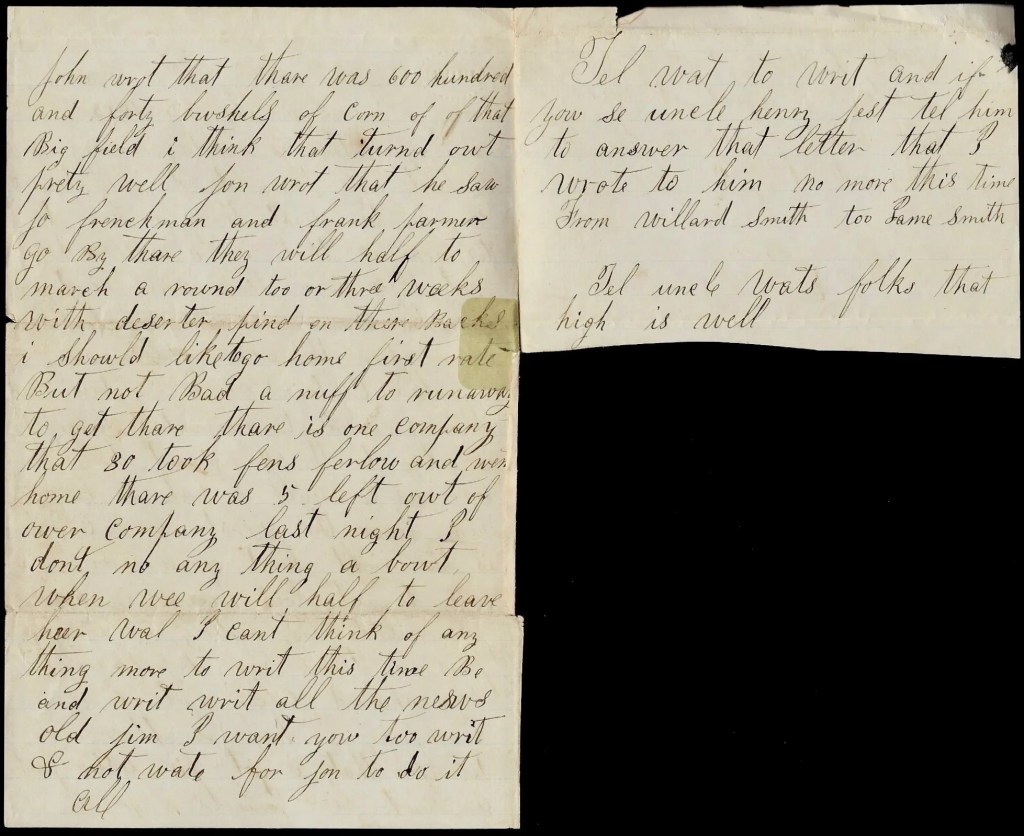 John wrot that thare was 600 hundred
and forty bwshels of corn of of that
Big field i think that turnd owt
prety well jon wrot that he saw
jo frenckman and frank parmer
go By thare they will half to
march a round too or three weeks
with deserter pind on there Backs
i showld like to go home first rate
But not Bad a nuff to runaway
to get thare thare is one company
that 30 took fens ferlow and wen
home thare was 5 left owt of
ower company last night I
dont no any thing a bowt
when wee will half to leave
heer wal I cant think of any
thing more to writ this time Be
and writ writ all the news
old jim I want you too writ
& not wate for jon to do it
all
Tel wat to writ and if
you se uncle henry jest tel him
to answer that letter that I
wrote to him no more this time
From willard smith too Fame smith
Tel uncle wats folks that
high is well